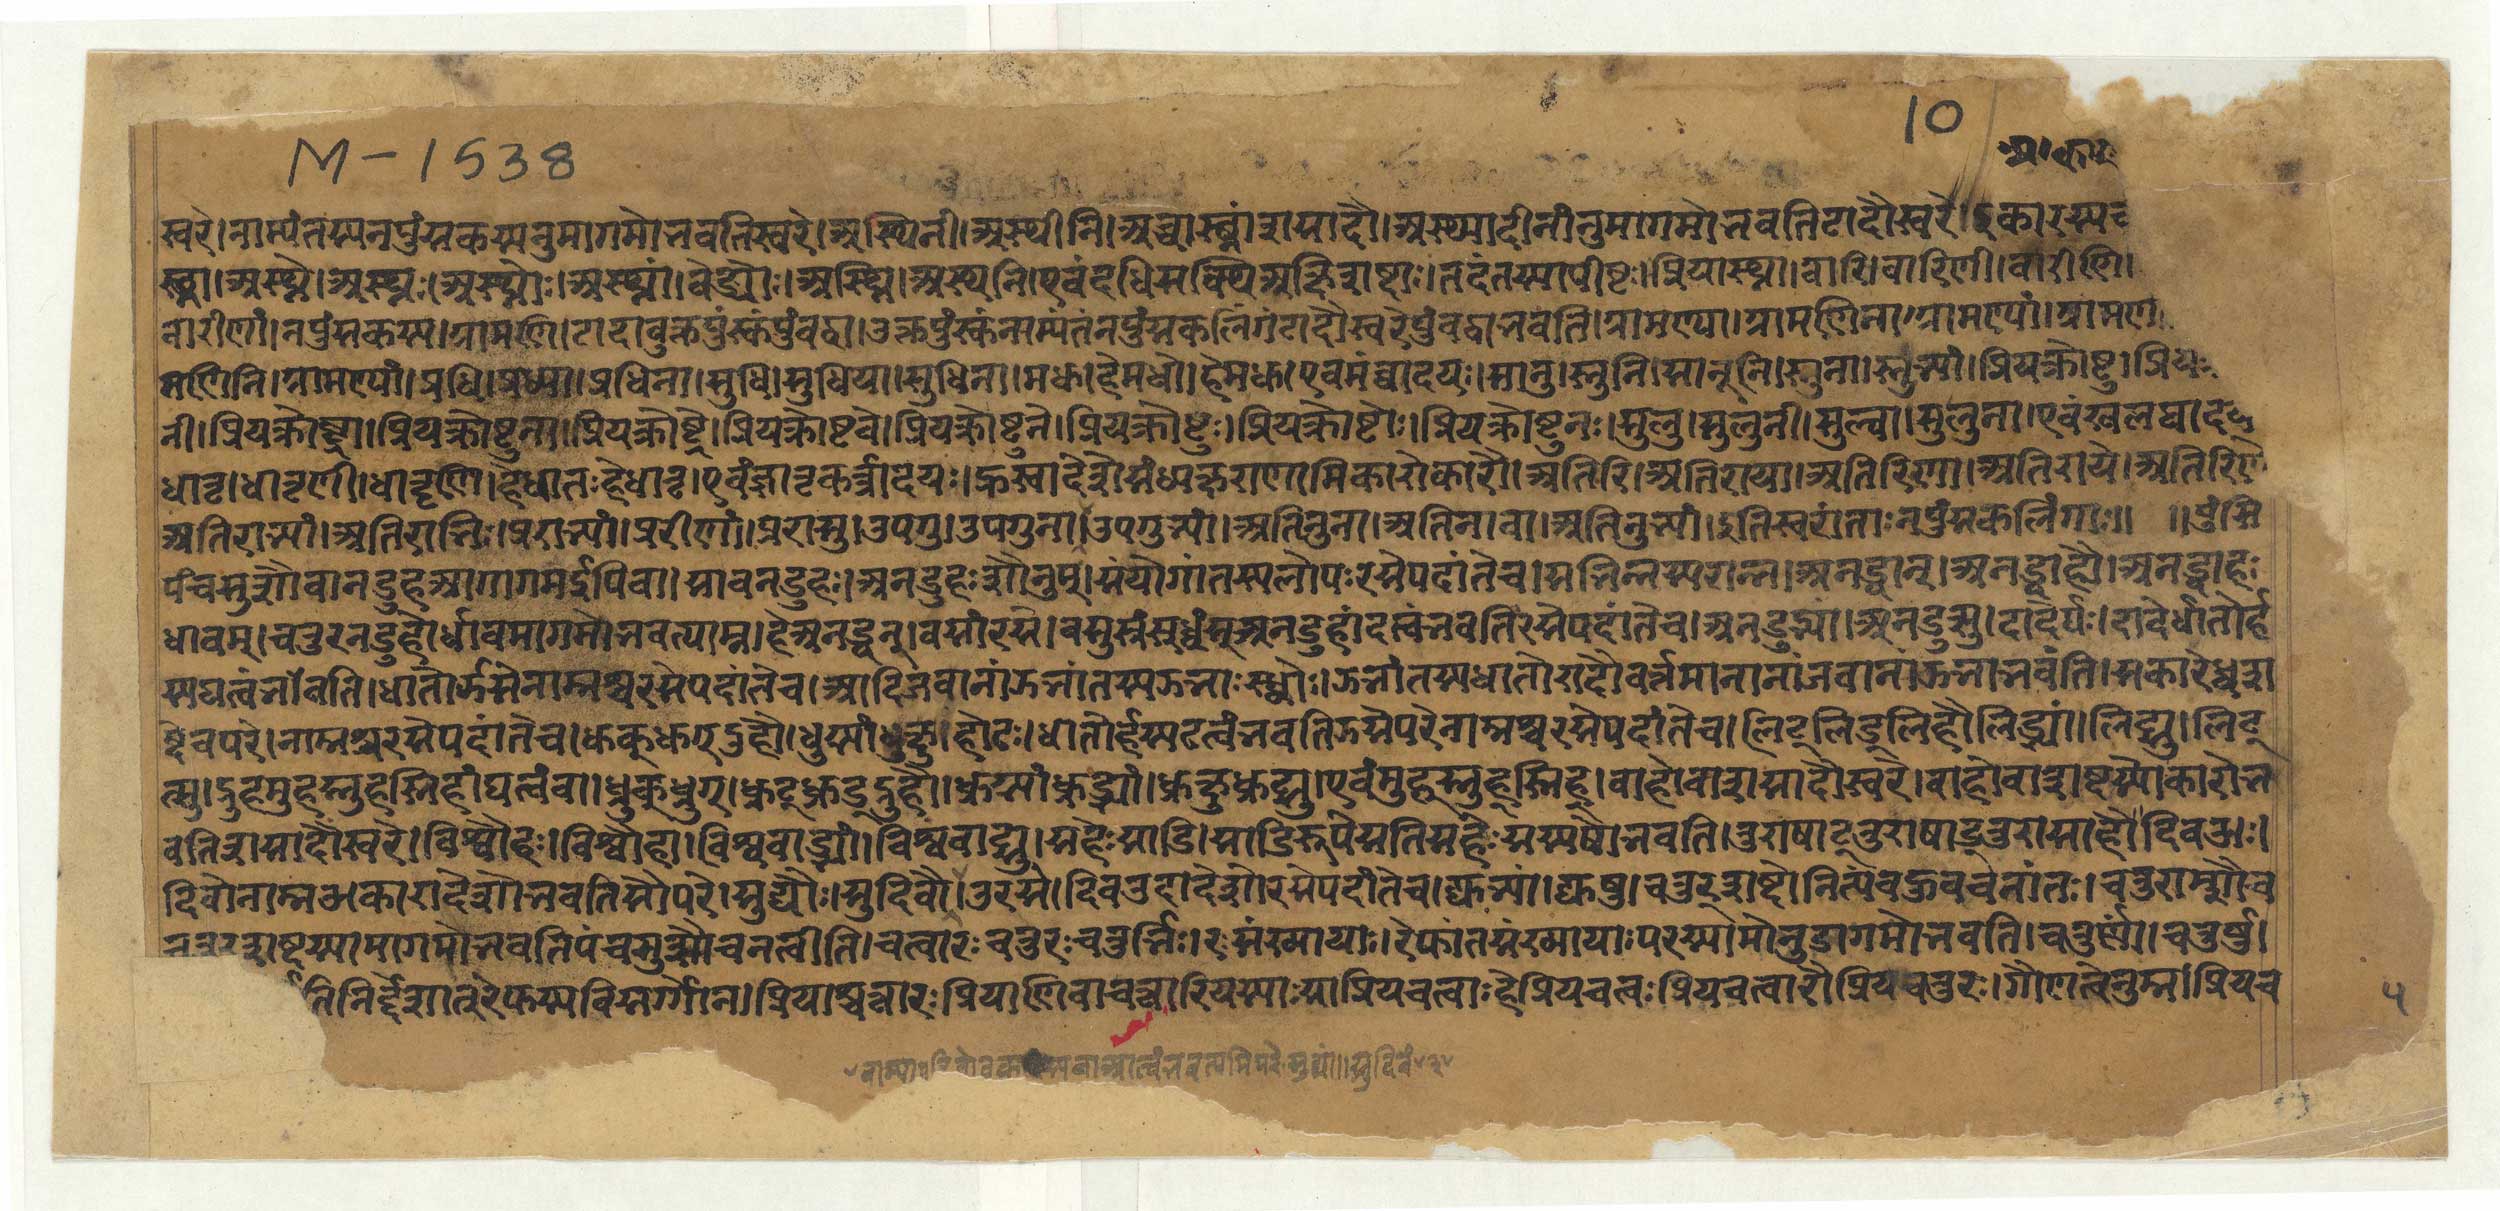 M-1538
10
स्वरे। नाम्यंतस्य नपुंसकस्य नुमागमो भवति स्वरे। अस्थिनी। अस्थीनि। अच्चास्थ्नां शसादौ। अस्थ्यादीनां नुमागमो भवति टादौ स्वरे। इकारस्य च
स्थ्ना। अस्थ्ने। अस्थ्नः। अस्थ्नोः। अस्थ्नां। वेङ्योः। अस्थ्नि। अस्थनि। एवं दधि सक्थि अक्षि शब्दाः। तदंतस्यापीष्टः। प्रियास्थ्ना। वारि। वारिणी। वारीणि।
वारीणां। नपुंसकस्य। ग्रामणि। टादावुक्तपुंस्कं पुंवद्वा। उक्तपुंस्कं नाम्यंतं नपुंसकलिंगं टादौ स्वरे पुंवद्वा भवति। ग्रामण्या। ग्रामणिना। ग्रामण्यां। ग्रामणी
मणिनि। ग्रामण्यां। प्रधि। प्रध्या। प्रधिना। सुधि। सुधिया। सुधिना। मधु। हे मधो। हे मधु। एवमंब्वादयः। सानु। स्नुनि। सानूनि। स्नुना। स्नुभ्यां। प्रियक्रोष्टु। प्रिय
नी। प्रियक्रोष्ट्रा। प्रियक्रोष्टुना। प्रियक्रोष्ट्रे। प्रियक्रोष्टवे। प्रियक्रोष्टुने। प्रियक्रोष्टुः। प्रियक्रोष्टोः। प्रियक्रोष्टुनः। सुलु। सुलुनी। सुल्वा। सुलुना। एवं खलप्वादयः
धातृ। धातृणी। धातॄणि। हे धातः हे धातृ। एवं ज्ञातृकर्त्रादयः। ह्रस्वादेशे संध्यक्षराणामिकारोकारौ। अतिरि। अतिराया। अतिरिणा। अतिराये। अतिरिणे
अतिराभ्यां। अतिराभिः। प्रराभ्यां। प्ररीणां। प्ररासु। उपगु। उपगुना। उपगुभ्यां। अतिनुना। अतिनावा। अतिनुभ्यां। इति स्वरांताः नपुंसकलिंगाः॥ ॥पुंसि
पंचसु शौ वानडुह आगागम ईपि वा। सावनडुहः। अनडुहः शौ नुम्। संयोगांतस्य लोपः रसे पदांते च। सन्निलस्यशान्न। अनड्वान्। अनड्वाहौ। अनड्वाहः
धावम्। चतुरनडुहोर्धावमागमो भवत्याम्न। हे अनड्वन्। वसां रसे। वसु स्रंसु ध्वंसु अनडुहां दत्वं भवति रसे पदांते च। अनडुद्भ्यां। अनडुत्सु। दादेर्घः। दादेर्धातोर्ह
स्य घत्वं भवति। धातोर्झसे नाम्नश्च रसे पदांते च। आदिजबानां झभांतस्य झभाः स्ध्वोः। झभांतस्य धातोरादौ वर्त्तमानानां जबानां झभा भवंति। सकारे ध्वशब्
्दे च परे। नाम्नश्च रसे पदांते च। धुक् धुग् दुहौ। धुग्भ्यां। धुक्षु। हो ढः। धातोर्हस्य ढत्वं भवति झसे परे नाम्नश्च रसे पदांते च। लिट् लिड् लिहौ लिड्भ्यां। लिट्सु। लिट्
त्सु। द्रुह मुह स्नुह स्निहां घत्वं वा। ध्रुक् ध्रुग्। ध्रुट् ध्रुड् द्रुहौ। ध्रुग्भ्यां ध्रुड्भ्यां। ध्रुक्षु ध्रुट्सु। एवं मुह् स्नुह् स्निह्। वाहो वा शसादौ स्वरे। वाहो वा शब्दस्यौकारो भ
वति शसादौ स्वरे। विश्वौहः। विश्वौहा। विश्ववाड्भ्यां। विश्ववाट्सु। सहेः साडि। साडिरूपे सति सहेः सस्य षो भवति। तुराषाट् तुराषाड् तुरासाहौ। दिव औः।
दिवो नाम्न औकारादेशो भवति सौ परे। सुद्यौः। सुदिवौ। उ रसे। दिव उहादेशो रसे पदांते च। द्युभ्यां। द्युषु। चतुर् शब्दो नित्यं बहुवचनांतः। चतुराम्शौ च
चतुर् शब्दस्यामागमो भवति पंचसु शौ च नत्वीति। चत्वारः चतुरः चतुर्भिः। रः संख्यायाः। रेफांतसंख्यायाः परस्यामो नुडागमो भवति। चतुर्ण्णां। चतुर्षु।
ति निर्द्देशात् रेफस्य विसर्गो न। प्रियाश्चत्वारः प्रियाणि वा चत्वारि यस्याः सा प्रियचत्वाः हे प्रियचत्वः प्रियचत्वारौ प्रियचतुरः। गौणत्वे नुम्न। प्रियच
५